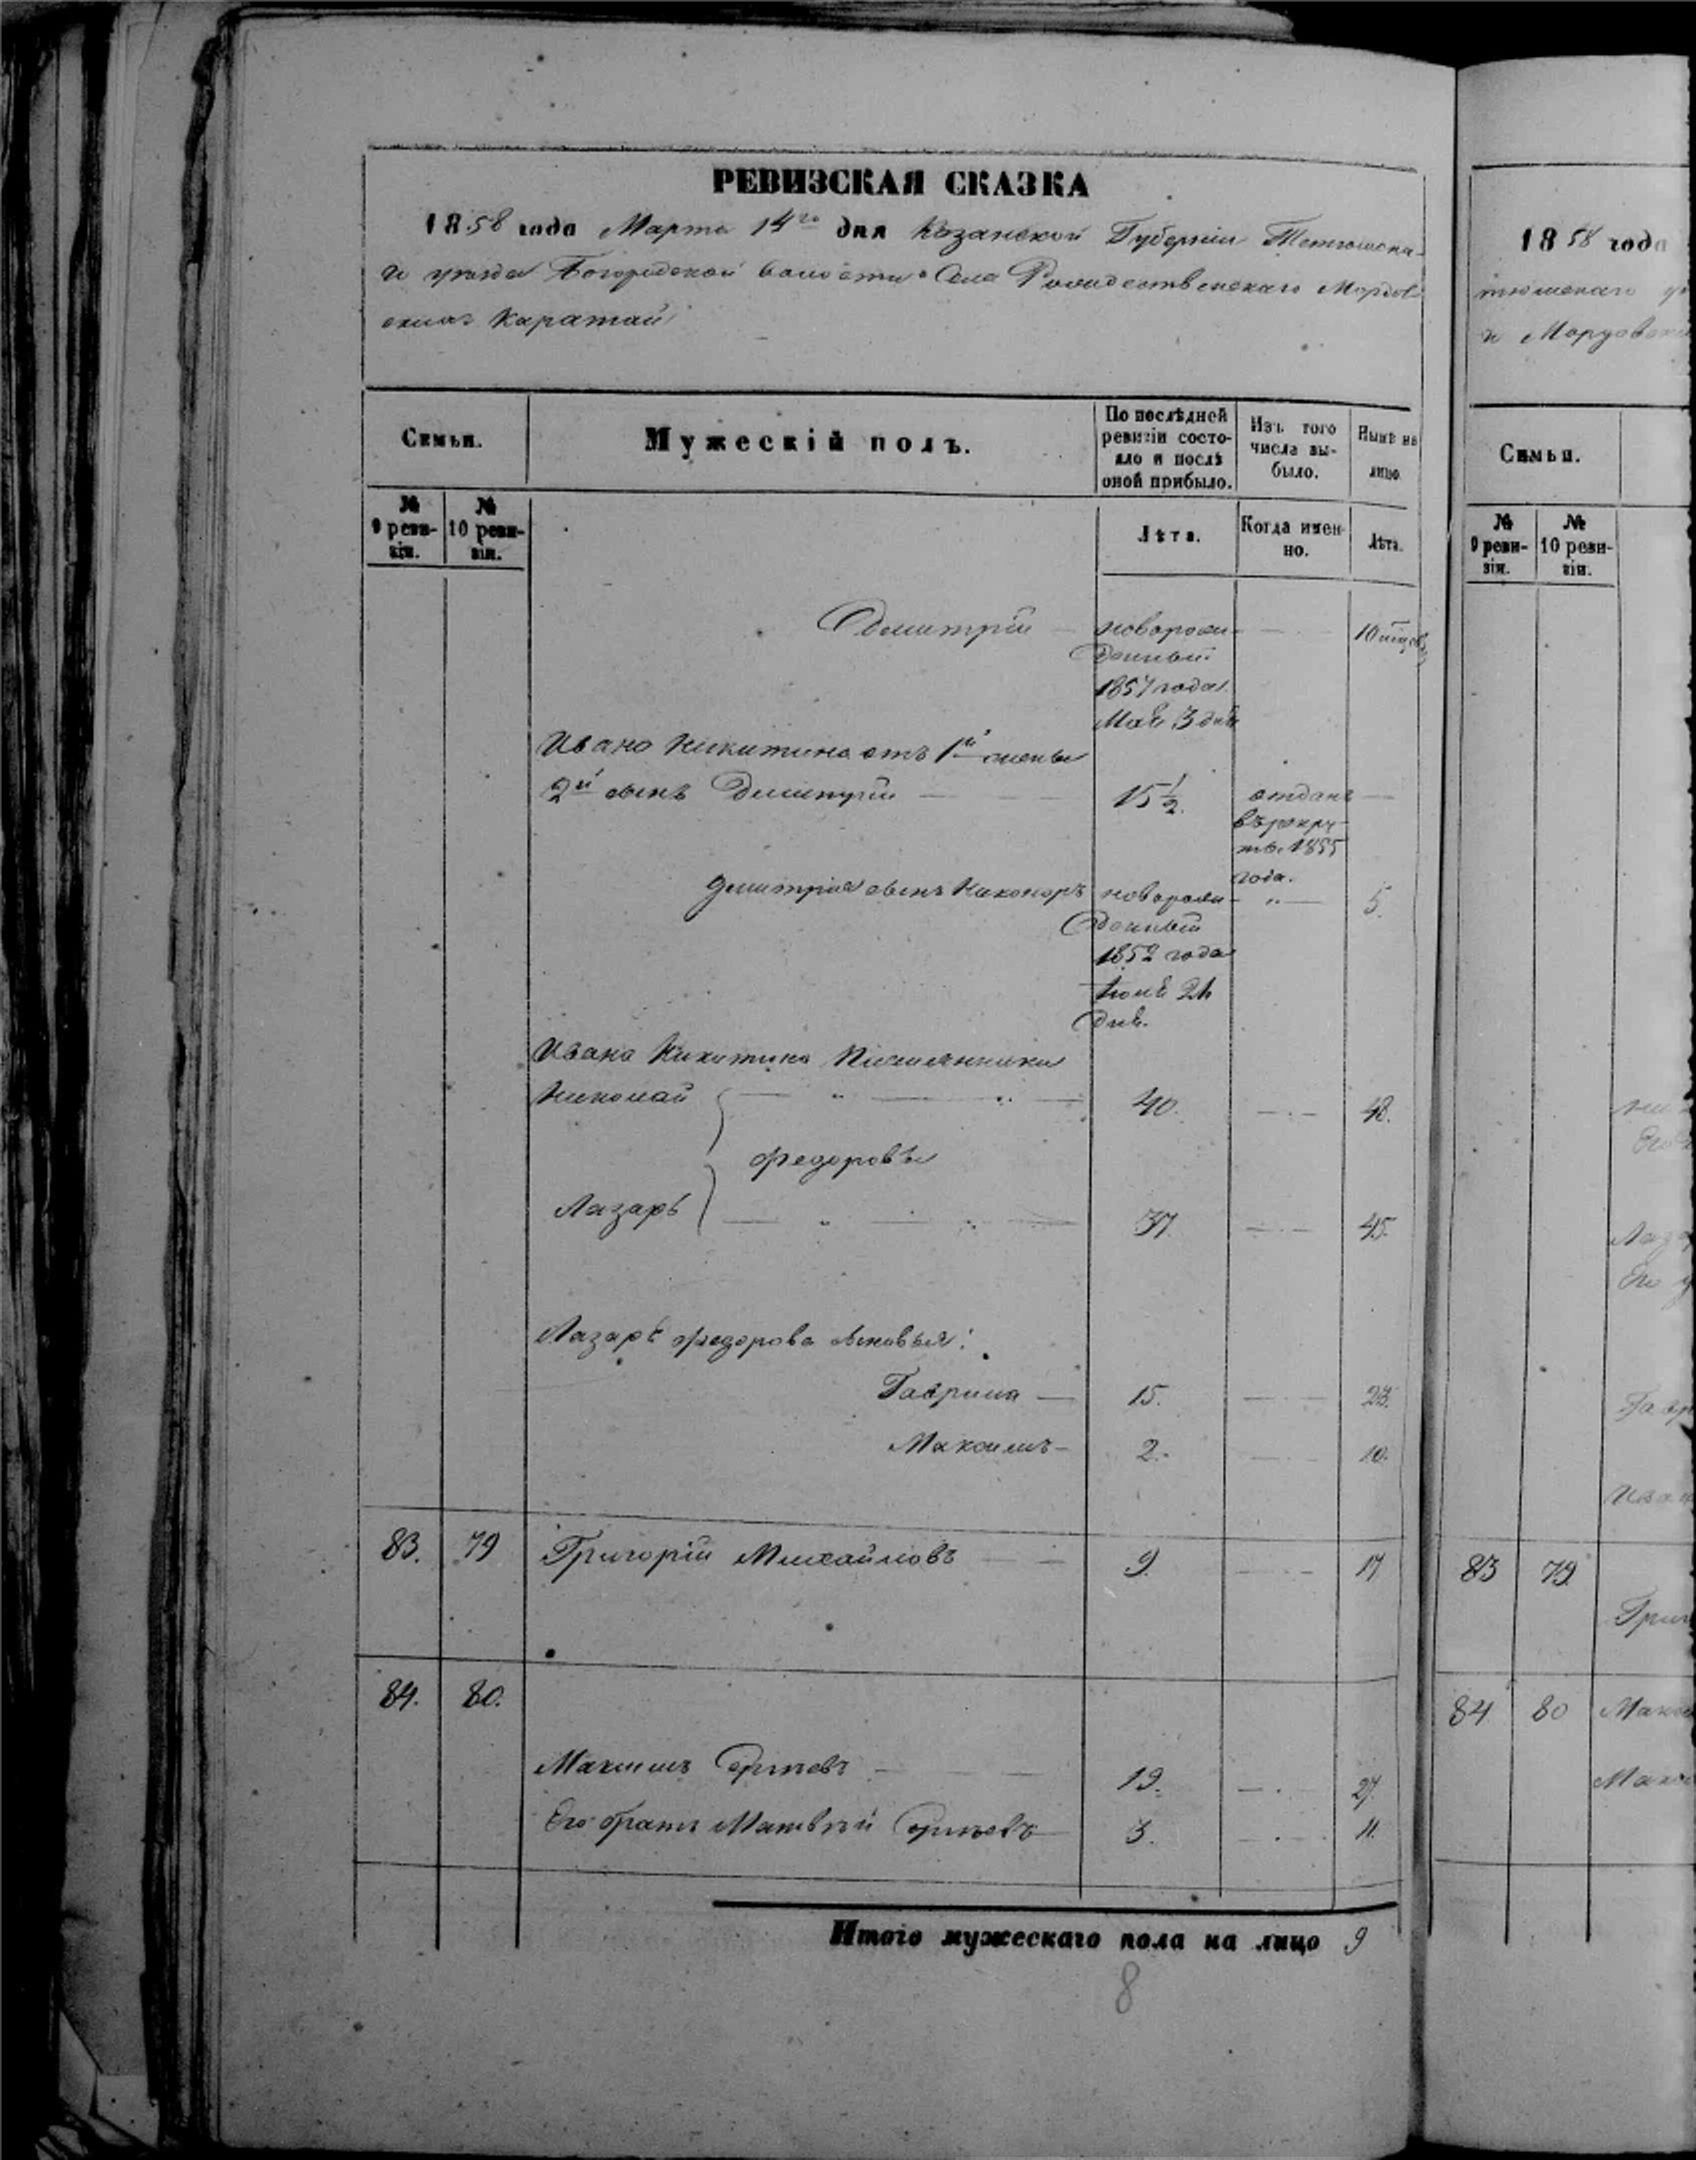 РЕВИЗСКАЯ СКАЗКА
1858 года Марта 14го дня Казанской Губерніи Тетюшска-
го уезда Богородской волости Села Рождественскаго Мордов
скихъ Каратай
Семьи.
Мужескій полъ.
По послѣдней ревизіи состо-
яло и послѣ оной прибыло.
Изъ того числа вы-
было.
Нынѣ на лицо.
№ 9 реви-
зіи.
№ 10 реви-
зіи.
Лѣта.
Когда имен-
но.
Лѣта.
Димитрій новорож-
денный
1857 года
Мая 3 дня
10
Ивана Никитина отъ 1й жены
2й сынъ Димитрій 15 1/2. отданъ
въ рекру-
ты 1855
года.
Димитрія сынъ Никоноръ новорож-
денный
1852 года
дня.
5.
Ивана Никитина Племянники
Николай 40. 48.
Федоровы
Лазарь 37. 45.
Лазаря Федорова сыновья:
Гаврила 15. 23.
Максимъ 2. 10.
83. 79 Григорій Михайловъ 9. 17
84. 80.
Максимъ 19. 27.
Его братъ Матвѣй 3. 11.
Итого мужескаго пола на лицо 9
8
1858 года
тюшскаго
и
Семьи.
№ 9 реви-
зіи.
№ 10 реви-
зіи.
83 79.
84 80